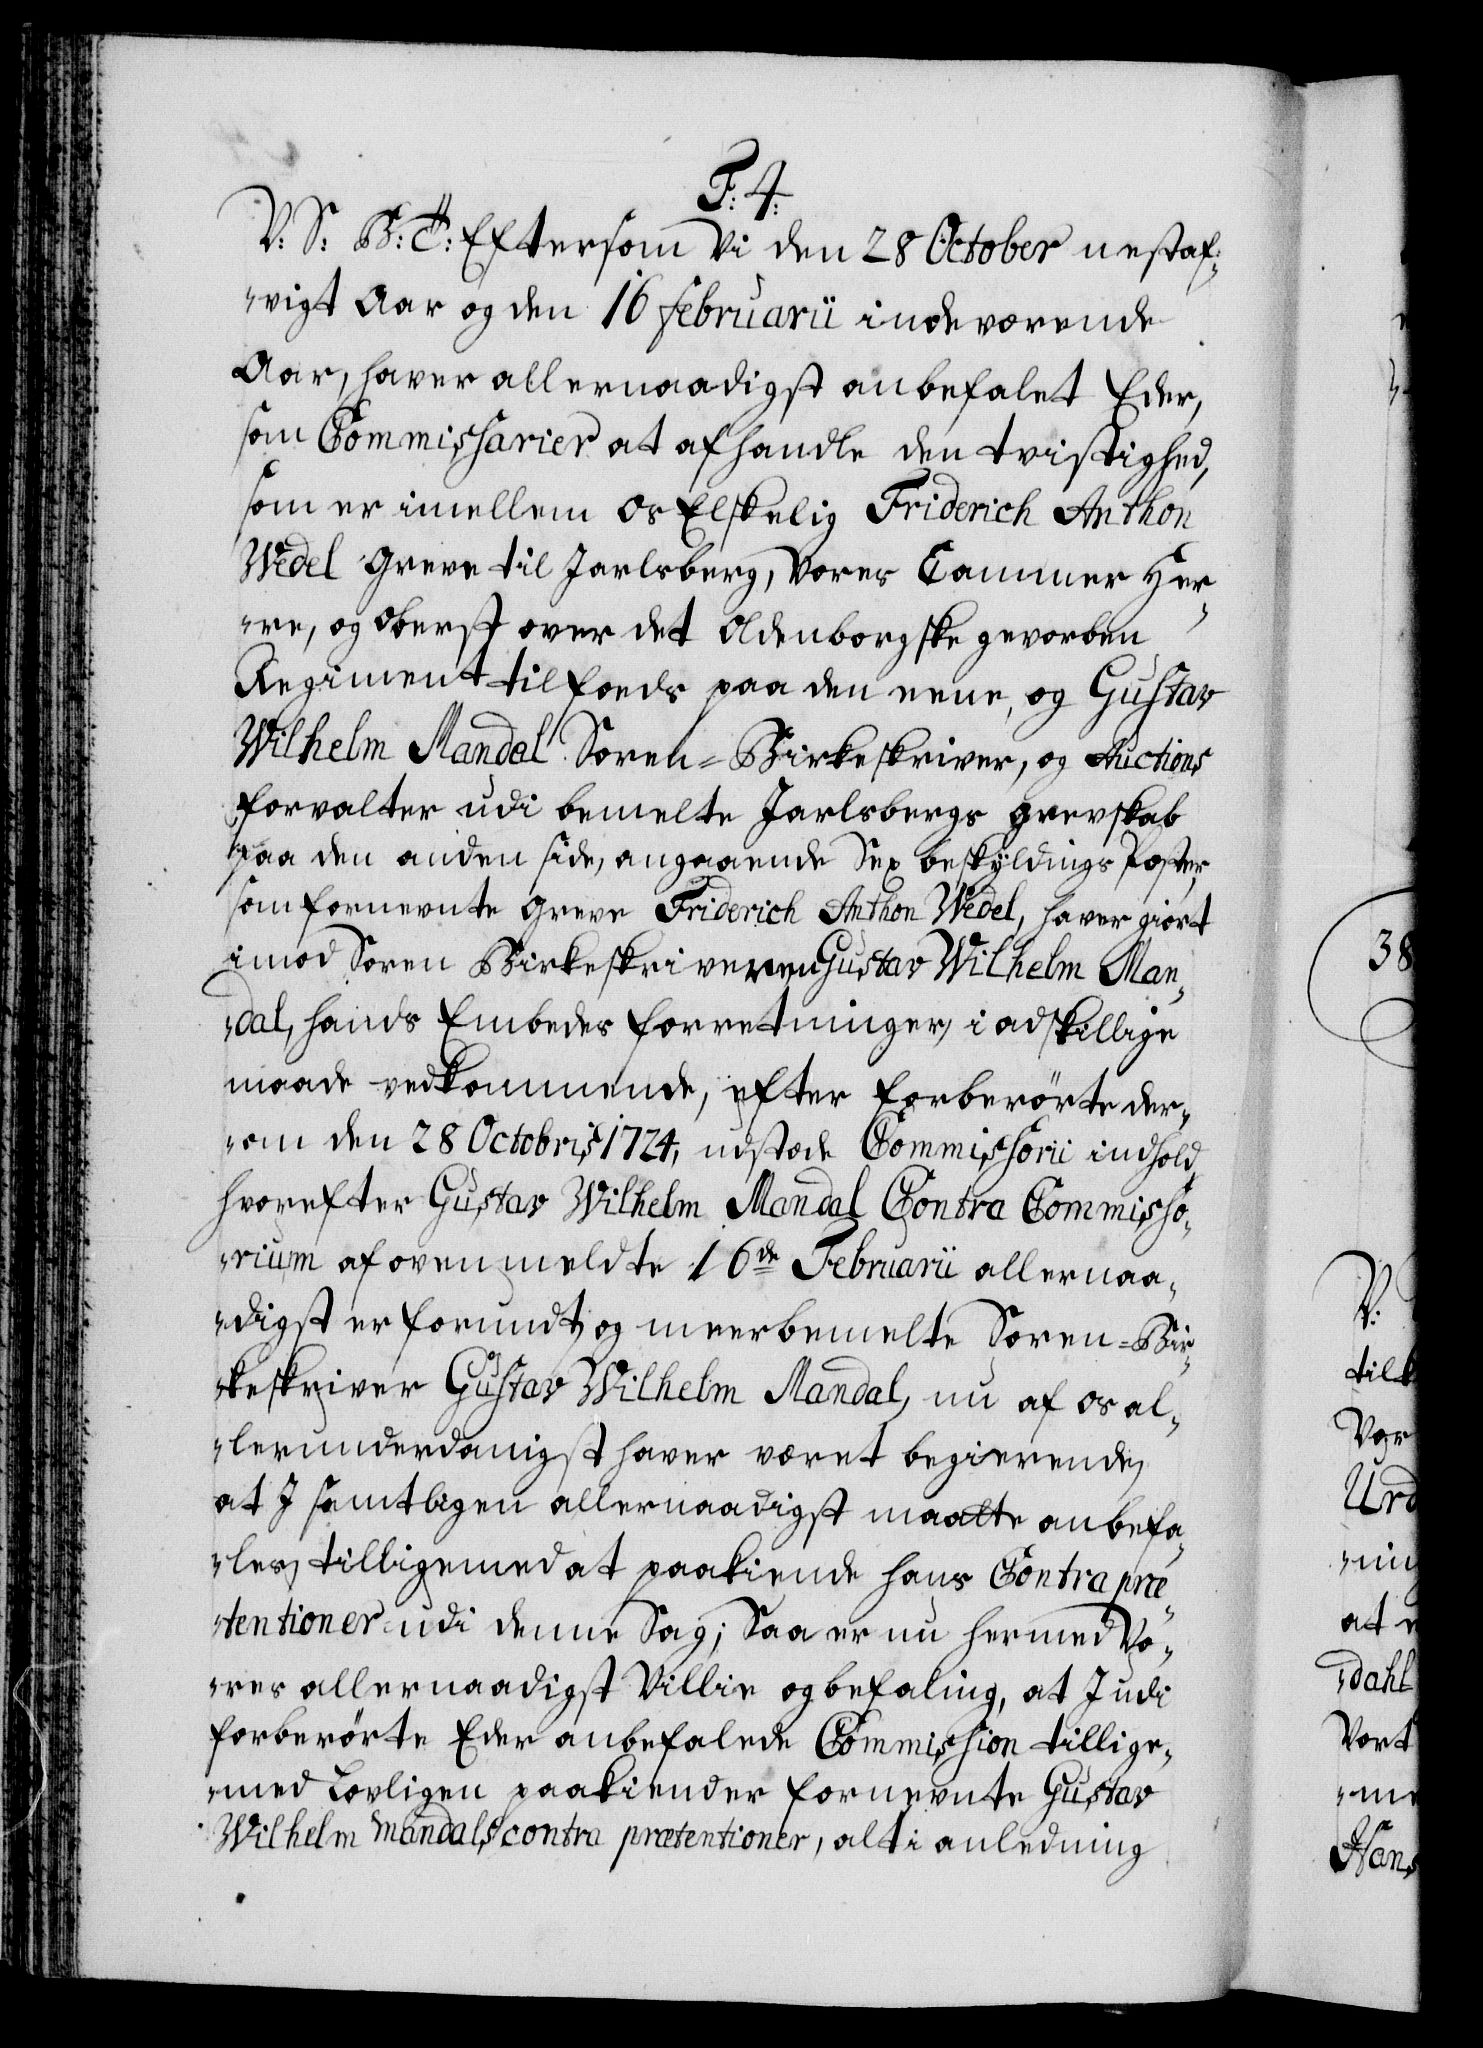 F. 4.
V: S: B: C: Eftersom Vi den 28 October nestaf-
vigt Aar og den 16 februarii indeværende
Aar, haver allernaadigst anbefalet Eder,
som Commissarier at afhandle den tvistighed,
som er imellem os Elskelig Friderich Anthon
Wedel Greve til Jarlsberg, Vores Cammer Her-
re, og Oberst over det Oldenborgske gevorben
Regiment til foeds paa den eene, og Gustav
Wilhelm Mandal Soren-Birkeskriver, og Auctions
forvalter udi bemelte Jarlsbergs grevskab
paa den anden side, angaaende Sex beskyldings Poster,
som fornevnte Greve Friderich Anthon Wedel, haver giort
imod Soren Birkeskriveren Gustav Wilhelm Man-
dal, hands Embedes forretninger, i adskillige
maade vedkommende, efter forberørte der-
om den 28 Octobris 1724, udstæde Commissorii indhold,
hvorefter Gustav Wilhelm Mandal Contra Commisso-
rium af ovenmeldte 16de Februarii allernaa-
digst er forundt, og meerbemelte Soren-Bir-
keskriver Gustav Wilhelm Mandal, nu af os al-
lerunderdanigst haver været begierende,
at I samtligen allernaadigst maatte anbefa-
les, tilligemed at paakiende hans Contra præ-
tentioner udi denne Sag; Saa er nu hermed Vo-
res allernaadigst Villie og befaling, at I udi
forberørte Eder anbefalede Commission tillige-
med Lovligen paakiender fornevnte Gustav
Wilhelm Mandals contra prætentioner, alt i anledning
38
V:
Vor
Urd
at
dahl
Vort
Hans